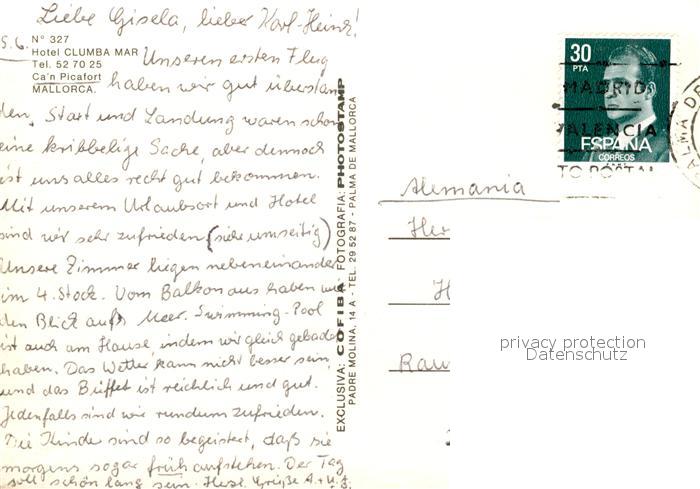 Liebe Gisela, lieber Karl-Heinz!
5.6.
N° 327
Hotel CLUMBA MAR
Tel. 52 70 25
Ca'n Picafort
MALLORCA.
Unseren ersten Flug
haben wir gut überstan
den, Start und Landung waren schon
eine kribbelige Sache, aber dennoch
ist uns alles recht gut bekommen.
Mit unserem Urlaubsort und Hotel
sind wir sehr zufrieden (siehe umseitig)
Unsere Zimmer liegen nebeneinander
im 4. Stock. Vom Balkon aus haben wir
den Blick aufs Meer. Swimming-Pool
ist auch am Hause, indem wir gleich gebadet
haben. Das Wetter kann nicht besser sein,
und das Büffet ist reichlich und gut.
Jedenfalls sind wir rundum zufrieden.
Die Kinder sind so begeistert, daß sie
morgens sogar früh aufstehen. Der Tag
soll schön lang sein. Herzl. Grüße A. + U. J.
EXCLUSIVA: COFIBA FOTOGRAFIA: PHOTOSTAMP
PADRE MOLINA, 14 A - TEL. 29 52 87 - PALMA DE MALLORCA
30
PTA
ESPAÑA
CORREOS
MADRID
VALENCIA
TO POSTAL
PALMA DE
Alemania
Her
H
Rau
privacy protection
Datenschutz